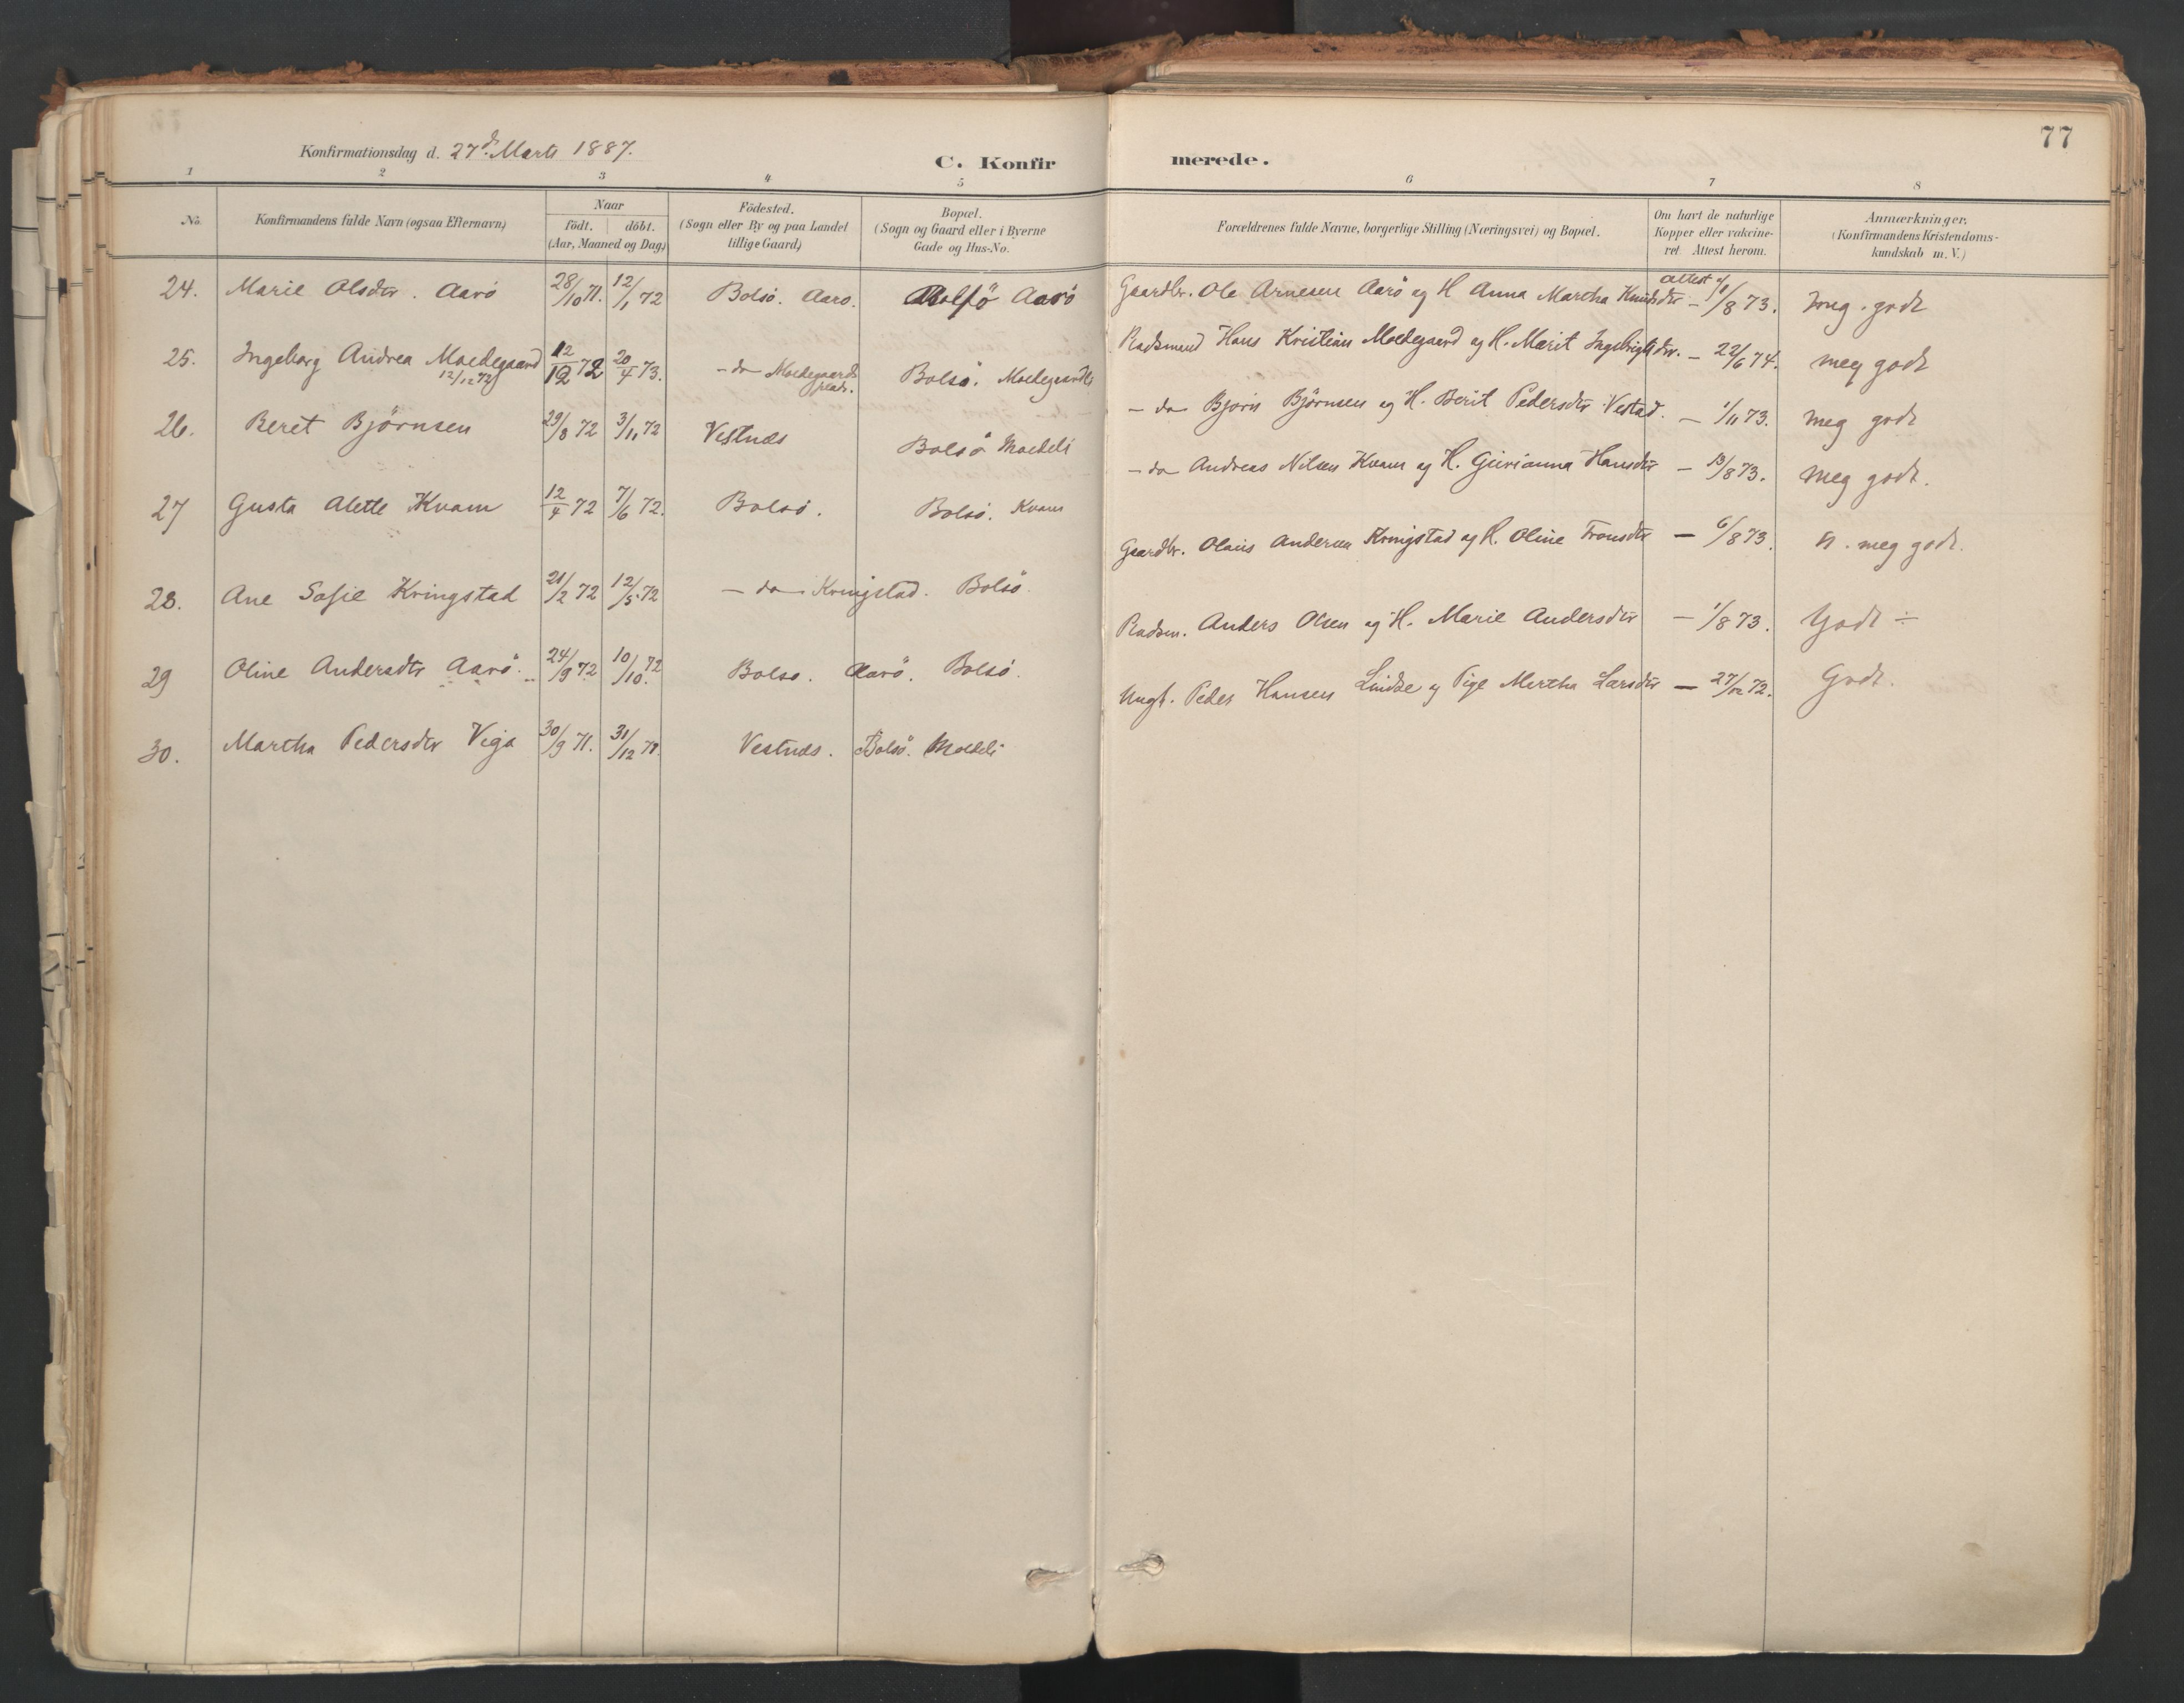 77
Konfirmationsdag d. 27d Marts 1887.
C. Konfir merede.
1 2 3 4 5 6 7 8
No. Konfirmandens fulde Navn (ogsaa Efternavn) Naar födt. döbt. (Aar, Maaned og Dag) Födested. (Sogn eller By og paa Landet tillige Gaard) Bopæl. (Sogn og Gaard eller i Byerne Gade og Hus-No. Forældrenes fulde Navne, borgerlige Stilling (Næringsvei) og Bopæl. Om havt de naturlige Kopper eller vakcineret. Attest herom. Anmærkninger. (Konfirmandens Kristendomskundskab m. V.)
24. Marie Olsdtr. Aarö 28/10 71. 12/1 72 Bolsö. Aaro. Bolsö Aarö Gaardbr. Ole Arnesen Aarö og H Anna Martha Knudsdtr attest – 1/8 73. meg. godt
25. Ingeborg Andrea Moedegaard 12/12 72 12/12 72 20/4 73. – do – Moedegaards plads. Bolsö. Moedegaardli Pladsmand Hans Kristian Moedegaard og H. Marit Ingebrigtsdtr. – 22/6 74. meg godt
26. Beret Björnsen 29/8 72 3/11 72 Vestnes Bolsö Moeli – do – Bjorn Björnsen og H. Berit Pedersdtr Vestad. – 1/11 73. meg godt
27 Gusta Alette Kvam 12/4 72 7/6 72. Bolsö. Bolsö. Kvam – do – Andreas Nilsen Kvam og H. Gurianna Hansdtr – 13/8 73. meg godt.
28. Ane Sofie Kringstad 21/2 72 12/5 72 – do – Kringstad. Bolsö. Gaardbr. Olaus Andersen Kringstad og H. Oline Tronsdtr – 6/8 73. n. meg godt.
29 Oline Andersdtr Aarö. 24/9 72 10/10 72 Bolso. Aarö. Bolsö. Pladsm. Anders Olsen og H. Marie Andersdtr – 1/8 73. Godt ÷
30. Martha Pedersdtr Vega 30/9 71. 31/12 71. Vestnes. Bolsö. Moeli Ungk. Peder Hansen og Pige Martha Larsdtr – 27/12 72. Godt.